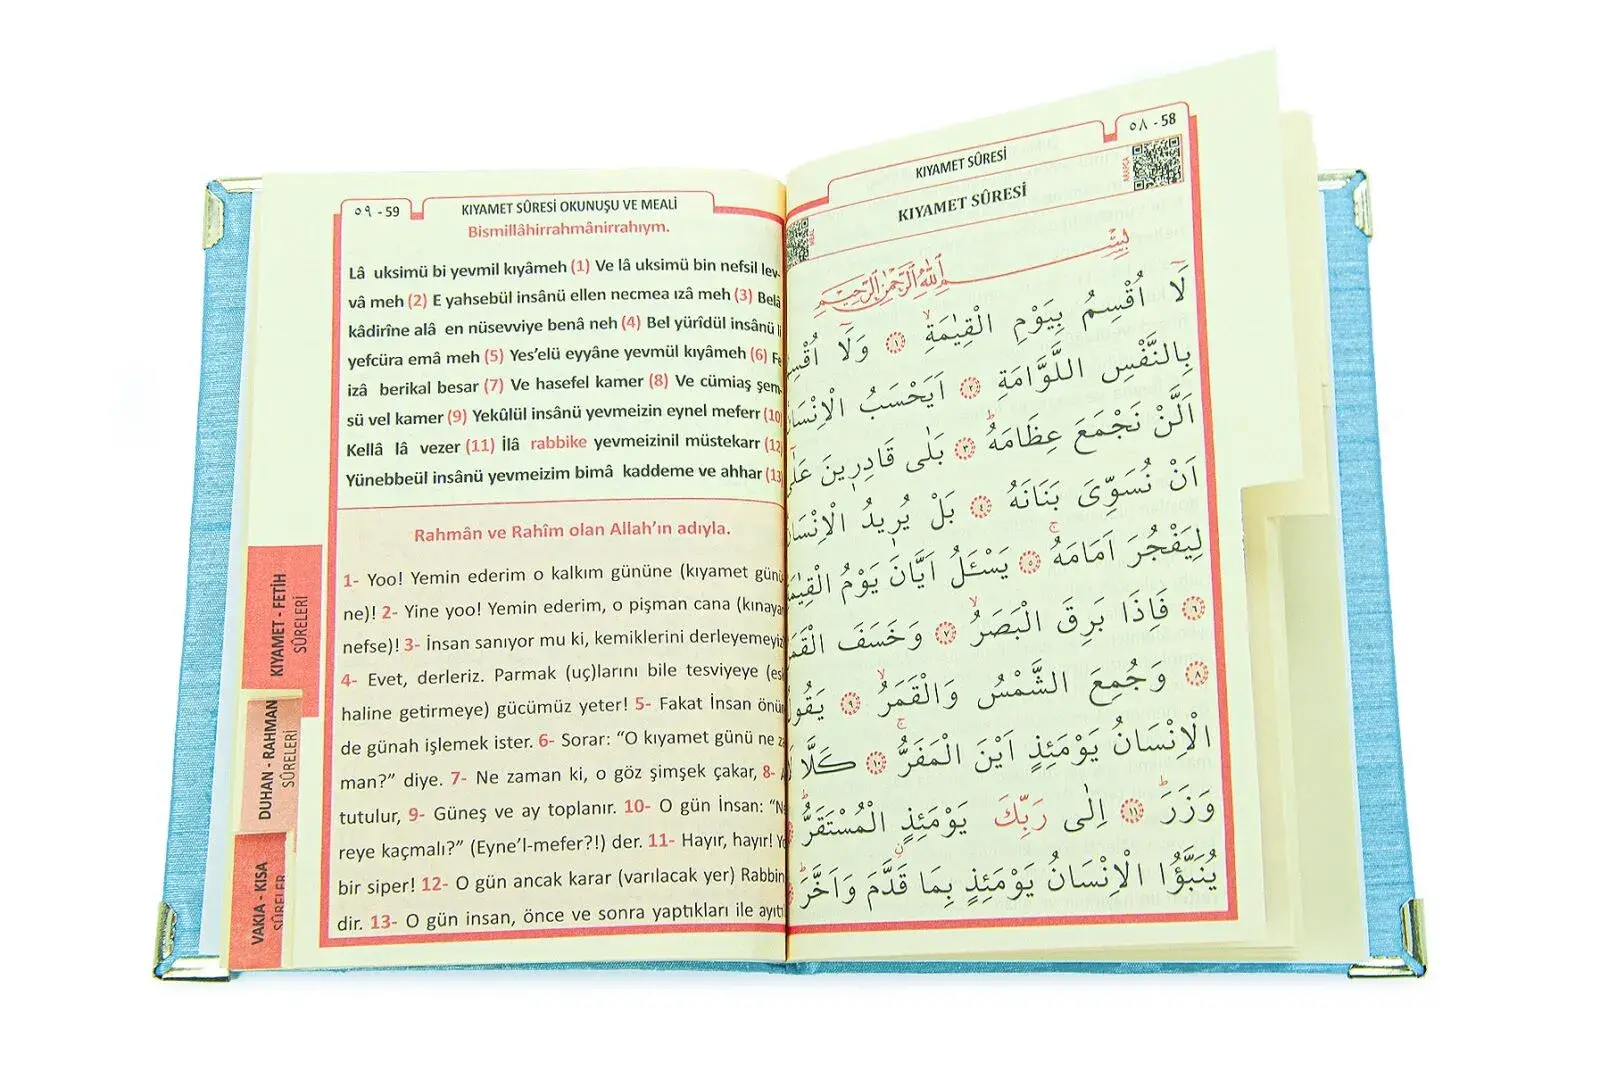 ٥٩ - 59
KIYAMET SÛRESİ OKUNUŞU VE MEALİ
Bismillâhirrahmânirrahıym.
Lâ uksimü bi yevmil kıyâmeh (1) Ve lâ uksimü bin nefsil lev-
vâ meh (2) E yahsebül insânü ellen necmea ızâ meh (3) Belâ
kâdirîne alâ en nüsevviye benâ neh (4) Bel yürîdül insânü li
yefcüra emâ meh (5) Yes'elü eyyâne yevmül kıyâmeh (6) Fe
izâ berikal besar (7) Ve hasefel kamer (8) Ve cümiaş şem-
sü vel kamer (9) Yekûlül insânü yevmeizin eynel meferr (10)
Kellâ lâ vezer (11) İlâ rabbike yevmeizinil müstekarr (12)
Yünebbeül insânü yevmeizim bimâ kaddeme ve ahhar (13)
Rahmân ve Rahîm olan Allah'ın adıyla.
1- Yoo! Yemin ederim o kalkım gününe (kıyamet günü
ne)! 2- Yine yoo! Yemin ederim, o pişman cana (kınayan
nefse)! 3- İnsan sanıyor mu ki, kemiklerini derleyemeyiz
4- Evet, derleriz. Parmak (uç)larını bile tesviyeye (es
haline getirmeye) gücümüz yeter! 5- Fakat İnsan önün
de günah işlemek ister. 6- Sorar: "O kıyamet günü ne z
man?" diye. 7- Ne zaman ki, o göz şimşek çakar, 8-
tutulur, 9- Güneş ve ay toplanır. 10- O gün İnsan: "Ne
reye kaçmalı?" (Eyne'l-mefer?!) der. 11- Hayır, hayır!
bir siper! 12- O gün ancak karar (varılacak yer) Rabbin
dir. 13- O gün insan, önce ve sonra yaptıkları ile
KIYAMET - FETİH
SÛRELERİ
DUHAN - RAHMAN
SÛRELERİ
VAKIA - KISA
SÛRELER
٥٨ - 58
KIYAMET SÛRESİ
ARAPÇA
KIYAMET SÛRESİ
MEAL
بِسْمِ اللّٰهِ الرَّحْمٰنِ الرَّحِيمِ
لَٓا اُقْسِمُ بِيَوْمِ الْقِيٰمَةِۙ ﴿١﴾ وَلَٓا اُقْسِمُ
بِالنَّفْسِ اللَّوَّامَةِ ﴿٢﴾ اَيَحْسَبُ الْاِنْسَانُ
اَلَّنْ نَجْمَعَ عِظَامَهُۜ ﴿٣﴾ بَلٰى قَادِرٖينَ عَلٰٓى
اَنْ نُسَوِّيَ بَنَانَهُ ﴿٤﴾ بَلْ يُرٖيدُ الْاِنْسَانُ
لِيَفْجُرَ اَمَامَهُۚ ﴿٥﴾ يَسْـَٔلُ اَيَّانَ يَوْمُ الْقِيٰمَةِ
﴿٦﴾ فَاِذَا بَرِقَ الْبَصَرُۙ ﴿٧﴾ وَخَسَفَ الْقَمَرُ
﴿٨﴾ وَجُمِعَ الشَّمْسُ وَالْقَمَرُۙ ﴿٩﴾ يَقُولُ
الْاِنْسَانُ يَوْمَئِذٍ اَيْنَ الْمَفَرُّۚ ﴿١٠﴾ كَلَّا لَا
وَزَرَۜ ﴿١١﴾ اِلٰى رَبِّكَ يَوْمَئِذٍ الْمُسْتَقَرُّۜ
يُنَبَّؤُا الْاِنْسَانُ يَوْمَئِذٍ بِمَا قَدَّمَ وَاَخَّرَۜ